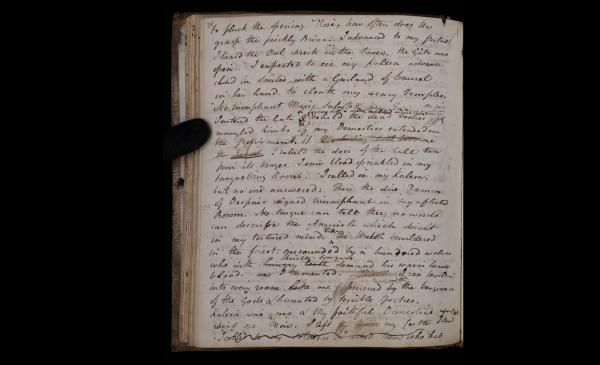 to pluck the opening Rose, how often does He
grasp the prickly Briar. I advanced to my
I heard the Owl shriek in the Tower. the Gate was
open. I expected to see my halesa advance
clad in Smiles with a Garland of Laurel
in her hand to cloath my weary Temples.
No triumphant Music
I enterd the Gate beheld the dead bodies of
mangled limbs of my Domestics extended on
the Pavement
the I beheld the door of the Hall torn
from its Hinges. I saw blood sprinkled in my
banquetting Rooms. I called on my halesa,
but no one answered: Then the dire Dæmon
of Despair reigned triumphant in my afflicted
Bosom. No tongue can tell thee, no words
can describe the Anguish which dwelt
in my tortured mind. like The Wretch bewildered
in the forest surrounded by a hundred wolves
who with thirsty tongues demand his warm hearts
blood. was I tormented. I ran
into every room. like one pursued by the Vengeance
of the Gods & haunted by terrible Spectres.
halesa was gone & My faithful Domestics
were no more. I left my Castle
I to my Soldiers I asked them who had